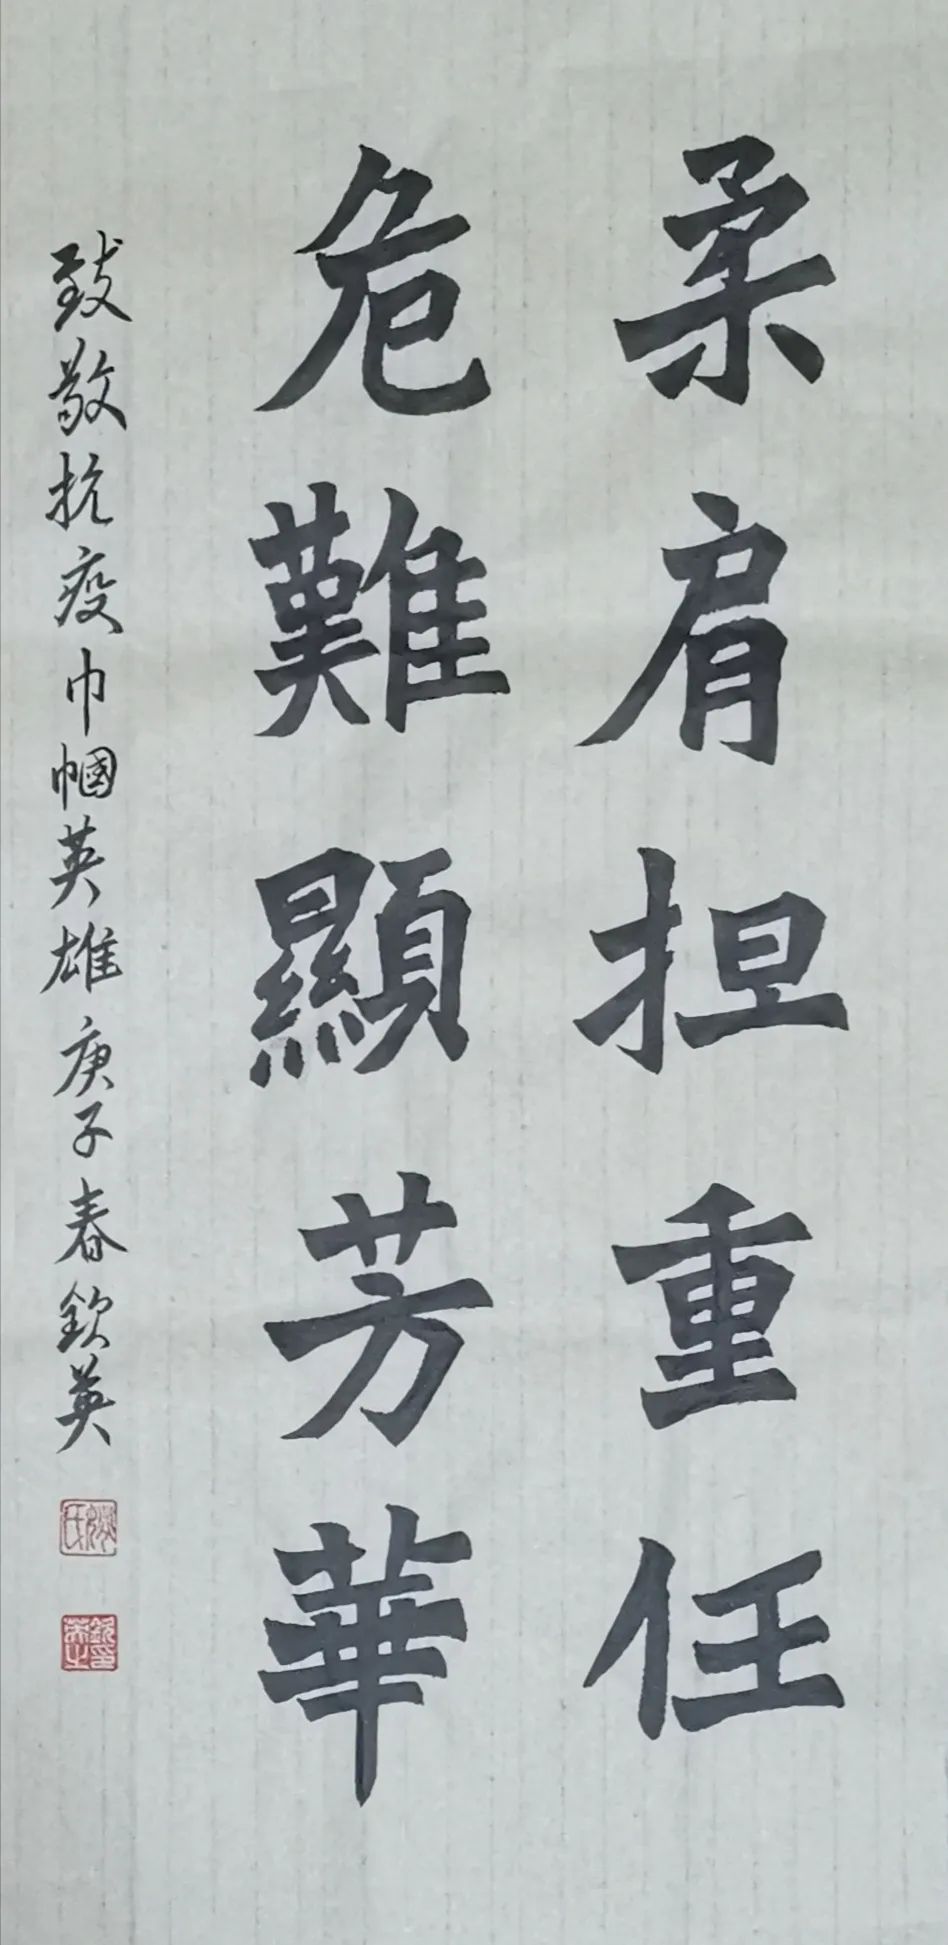 柔肩担重任
危難顯芳華
致敬抗疫巾幗英雄 庚子春 欽英